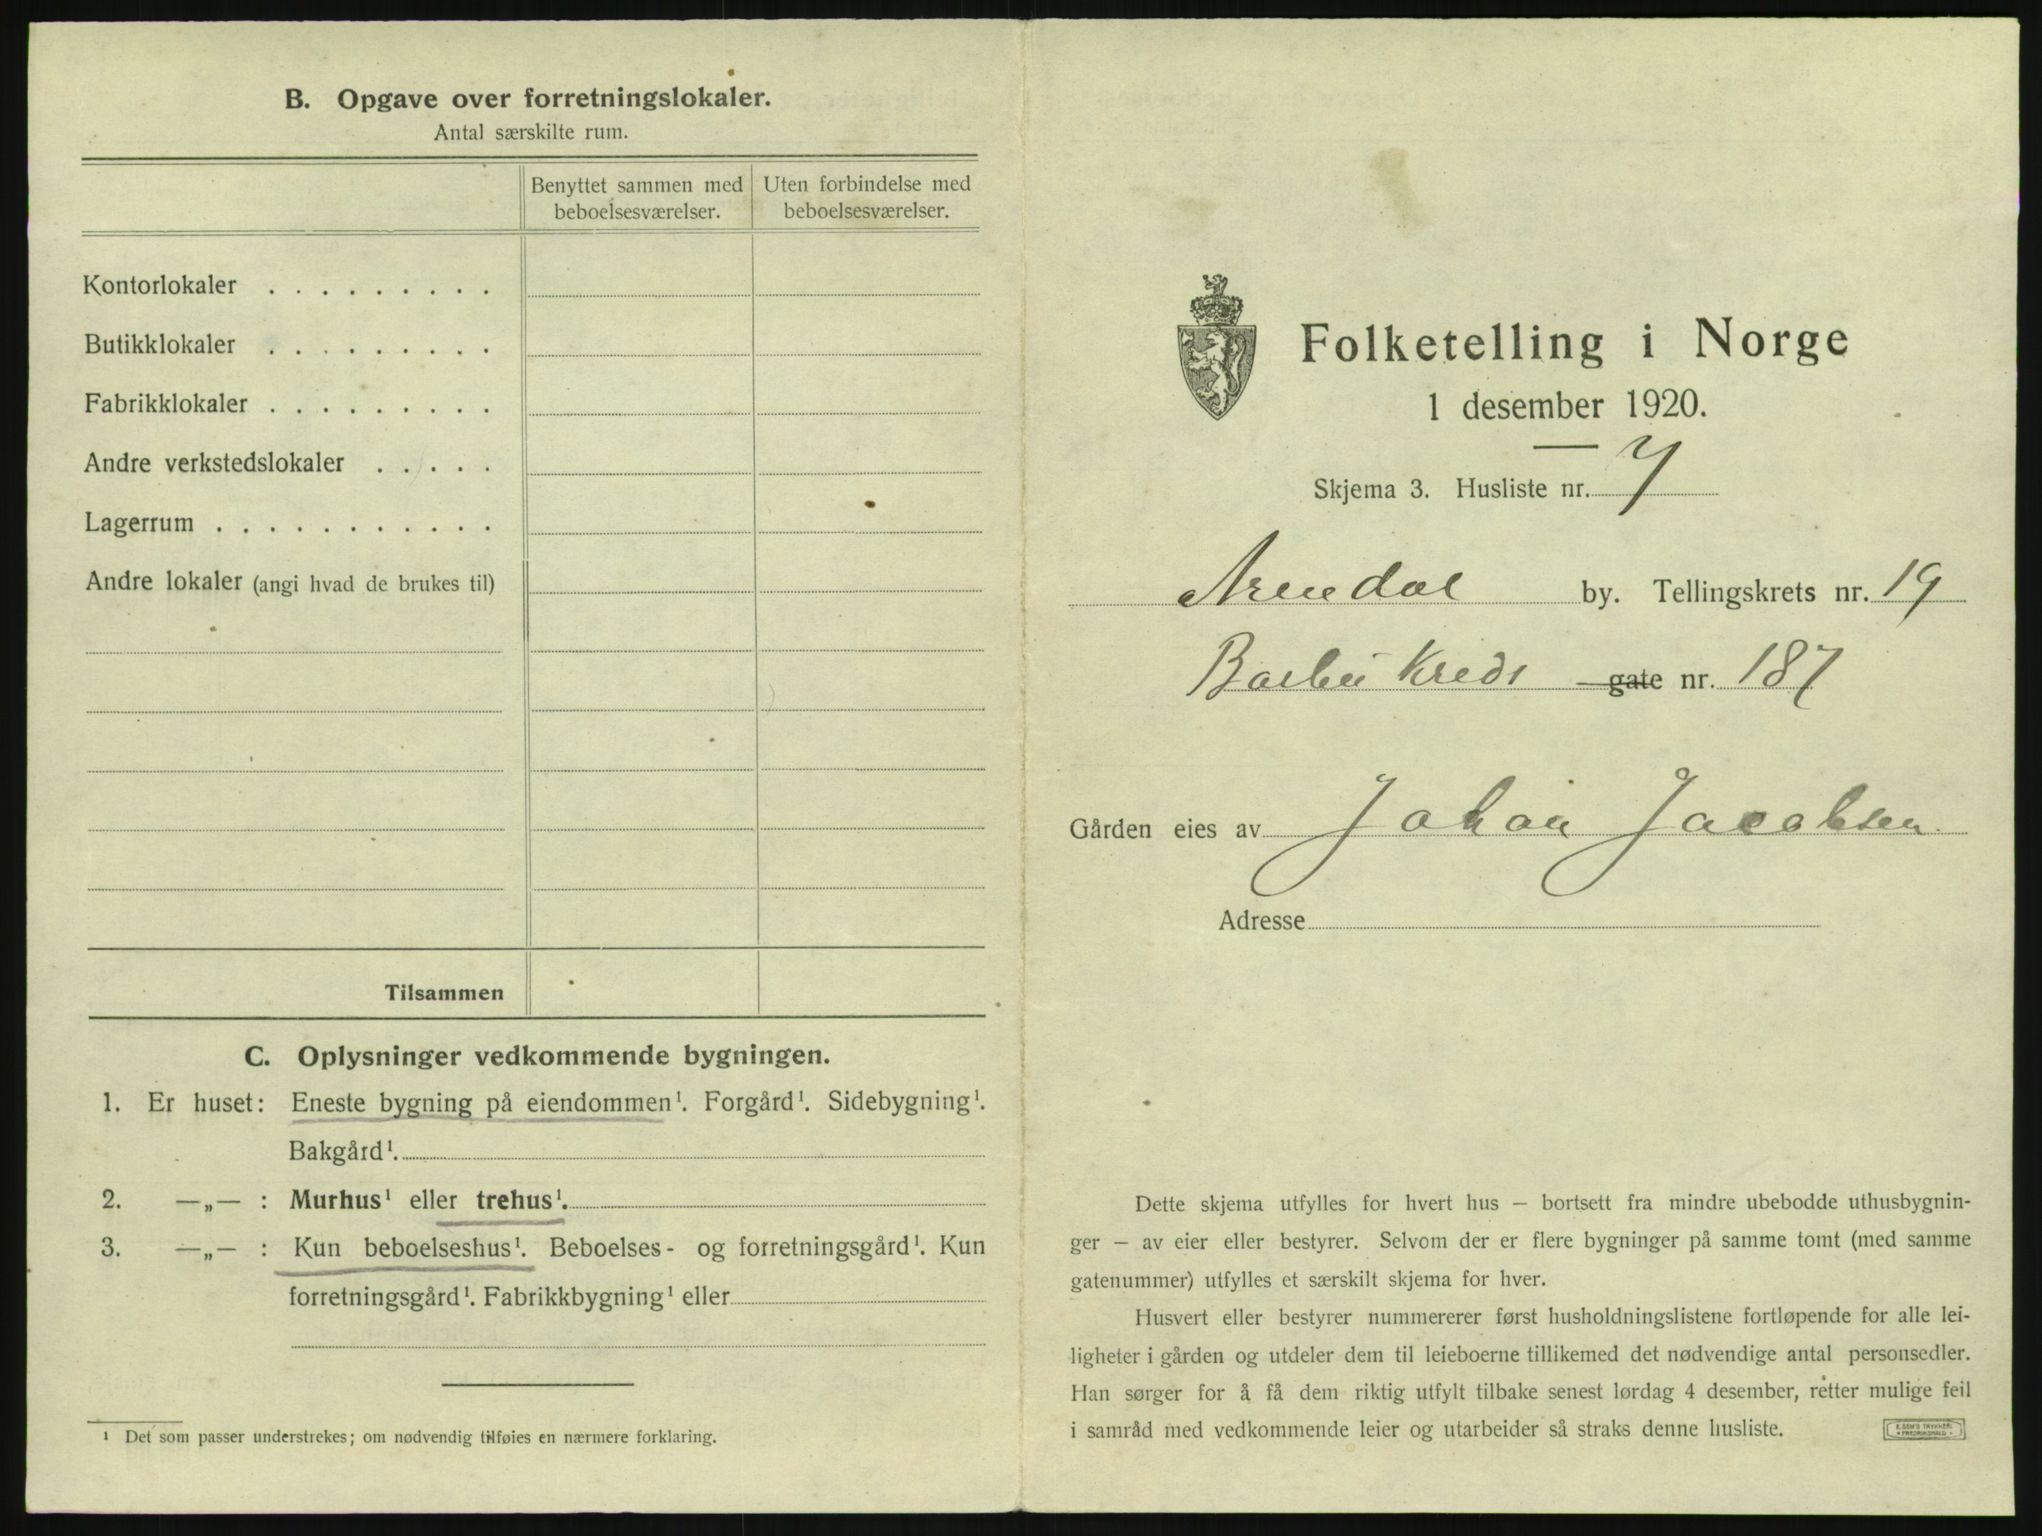 B. Opgave over forretningslokaler.
Antal særskilte rum.
Benyttet sammen med beboelsesværelser.
Uten forbindelse med beboelsesværelser.
Kontorlokaler . . . . . . . . .
Butikklokaler . . . . . . . . .
Fabrikklokaler . . . . . . . . .
Andre verkstedslokaler . . . . .
Lagerrum . . . . . . . . . . .
Andre lokaler (angi hvad de brukes til)
Tilsammen
C. Oplysninger vedkommende bygningen.
1. Er huset: Eneste bygning på eiendommen¹. Forgård¹. Sidebygning¹.
Bakgård¹.
2. —„— : Murhus¹ eller trehus¹.
3. —„— : Kun beboelseshus¹. Beboelses- og forretningsgård¹. Kun
forretningsgård¹. Fabrikkbygning¹ eller
¹ Det som passer understrekes; om nødvendig tilføies en nærmere forklaring.
Folketelling i Norge
1 desember 1920.
Skjema 3. Husliste nr. 7
Arendal by. Tellingskrets nr. 19
Barbu Kreds gate nr. 187
Gården eies av Johan Jacobsen
Adresse
Dette skjema utfylles for hvert hus — bortsett fra mindre ubebodde uthusbygnin-
ger — av eier eller bestyrer. Selvom der er flere bygninger på samme tomt (med samme
gatenummer) utfylles et særskilt skjema for hver.
Husvert eller bestyrer nummererer først husholdningslistene fortløpende for alle lei-
ligheter i gården og utdeler dem til leieboerne tillikemed det nødvendige antal personsedler.
Han sørger for å få dem riktig utfylt tilbake senest lørdag 4 desember, retter mulige feil
i samråd med vedkommende leier og utarbeider så straks denne husliste.